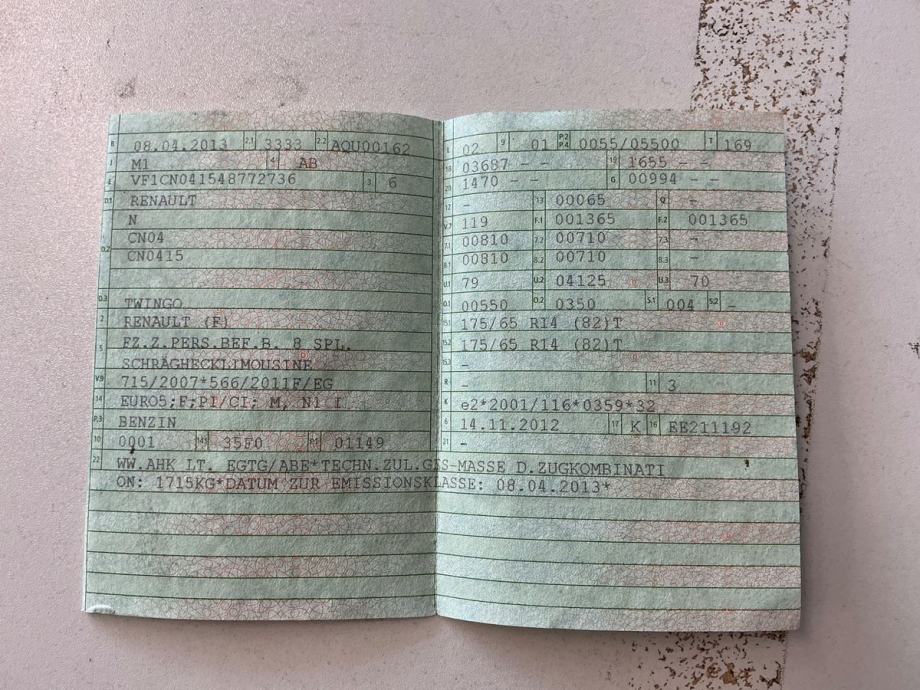 B 08.04.2013 2.1 3333 2.2 AQU00162
J M1 4 AB
E VF1CN041548772736 3 6
D.1 RENAULT
N
CN04
D.2 CN0415
D.3 TWINGO
2 RENAULT (F)
5 FZ.Z.PERS.BEF.B. 8 SPL.
SCHRÄGHECKLIMOUSINE
V.9 715/2007*566/2011F/EG
14 EURO5;F;PI/CI; M, N1 I
P.3 BENZIN
10 0001 14.1 35F0 P.1 01149
L 02 9 01 P.2 P.4 0055/05500 T 169
18 03687 - - 19 1655 - -
20 1470 - - G 00994 -
12 - 13 00065 Q -
V.7 119 F.1 001365 F.2 001365
7.1 00810 7.2 00710 7.3 -
8.1 00810 8.2 00710 8.3 -
U.1 79 U.2 04125 U.3 70
O.1 00550 O.2 0350 S.1 004 S.2 -
15.1 175/65 R14 (82)T
15.2 175/65 R14 (82)T
15.3 -
R - 11 3
K e2*2001/116*0359*32
6 14.11.2012 17 K 16 EE211192
21 -
22 WW.AHK LT. EGTG/ABE*TECHN.ZUL.GES-MASSE D.ZUGKOMBINATI
ON: 1715KG*DATUM ZUR EMISSIONSKLASSE: 08.04.2013*